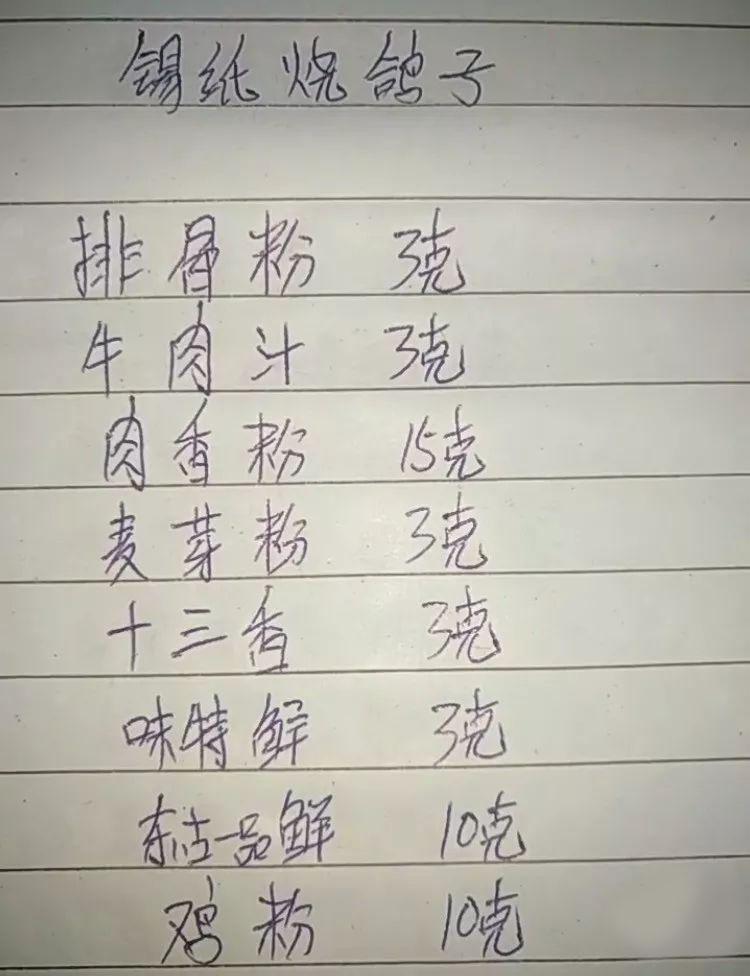 锡纸烧鸽子
排骨粉 3克
牛肉汁 3克
肉香粉 15克
麦芽粉 3克
十三香 3克
味特鲜 3克
东古一品鲜 10克
鸡粉 10克